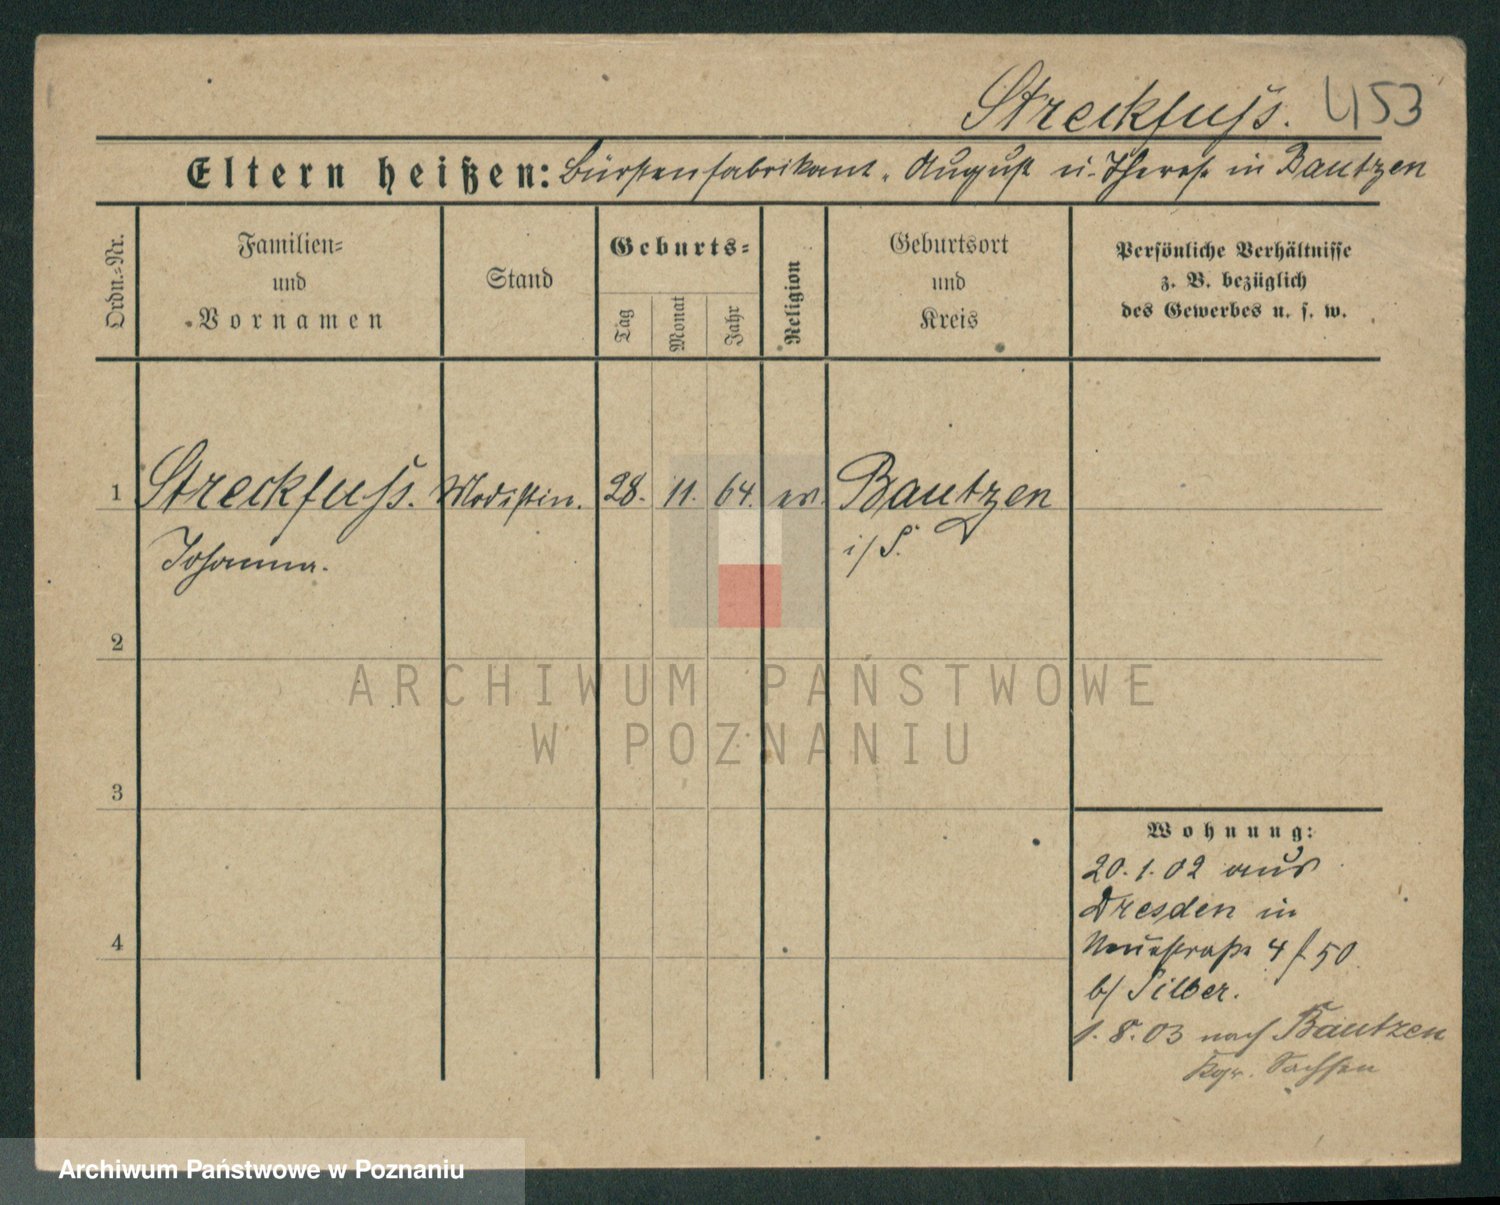 Streckfuss. 453
Eltern heißen: Bürstenfabrikant, August u. Therese in Bautzen
Ordn.-Nr.
Familien-
und
Vornamen
Stand
Geburts-
Tag
Monat
Jahr
Religion
Geburtsort
und
Kreis
Persönliche Verhältnisse
z. B. bezüglich
des Gewerbes u. s. w.
1 Streckfuss. Modistin. 28. 11. 64. ev. Bautzen
Johanna. i/S.
2
ARCHIWUM PAŃSTWOWE
W POZNANIU
3
Wohnung:
20.1.02 aus
Dresden in
4
Neuestraße 4 f 50
b/ Silber.
1.8.03 nach Bautzen
Kgr. Sachsen
Archiwum Państwowe w Poznaniu